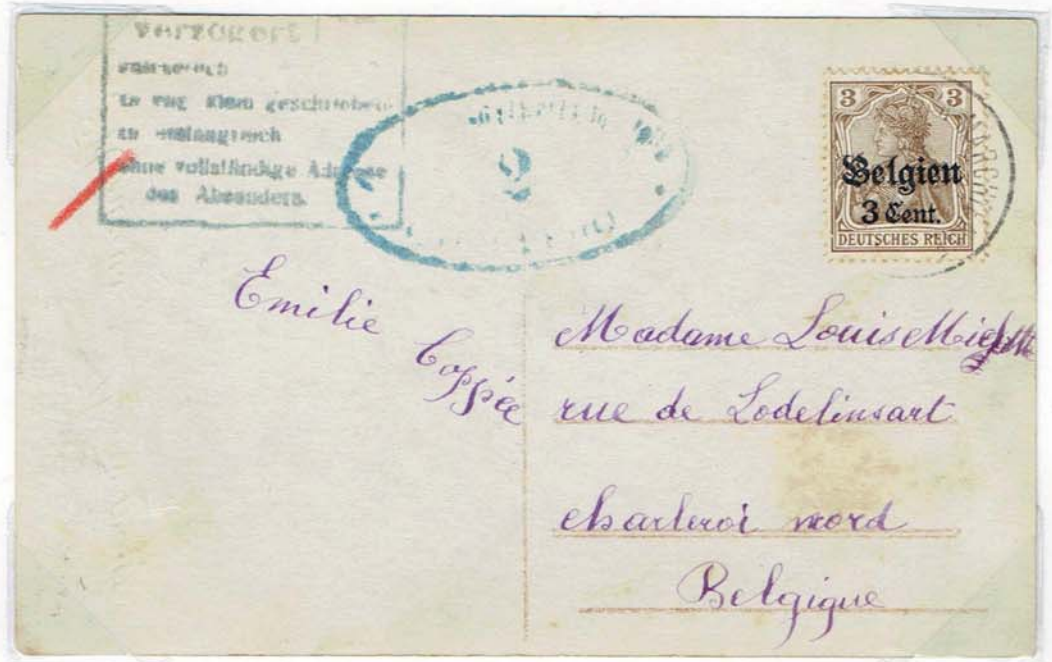 zu eng klein geschrieben
zu umfangreich
ohne vollständige Adresse
des Absenders.
2
3 3
Belgien
3 Cent.
DEUTSCHES REICH
Emilie
Coppée
Madame Louis
rue de Lodelinsart
charleroi nord
Belgique